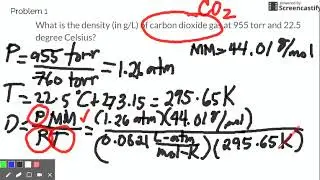 powered by
Screencastify
Problem 1
CO2
What is the density (in g/L) of carbon dioxide gas at 955 torr and 22.5
degree Celsius?
MM=44.01 g/mol
P= 955 torr / 760 torr = 1.26 atm
T= 22.5°C+273.15=295.65K
D= P MM / R T = (1.26 atm)(44.01 g/mol) / (0.0821 L-atm / mol-K)(295.65K)